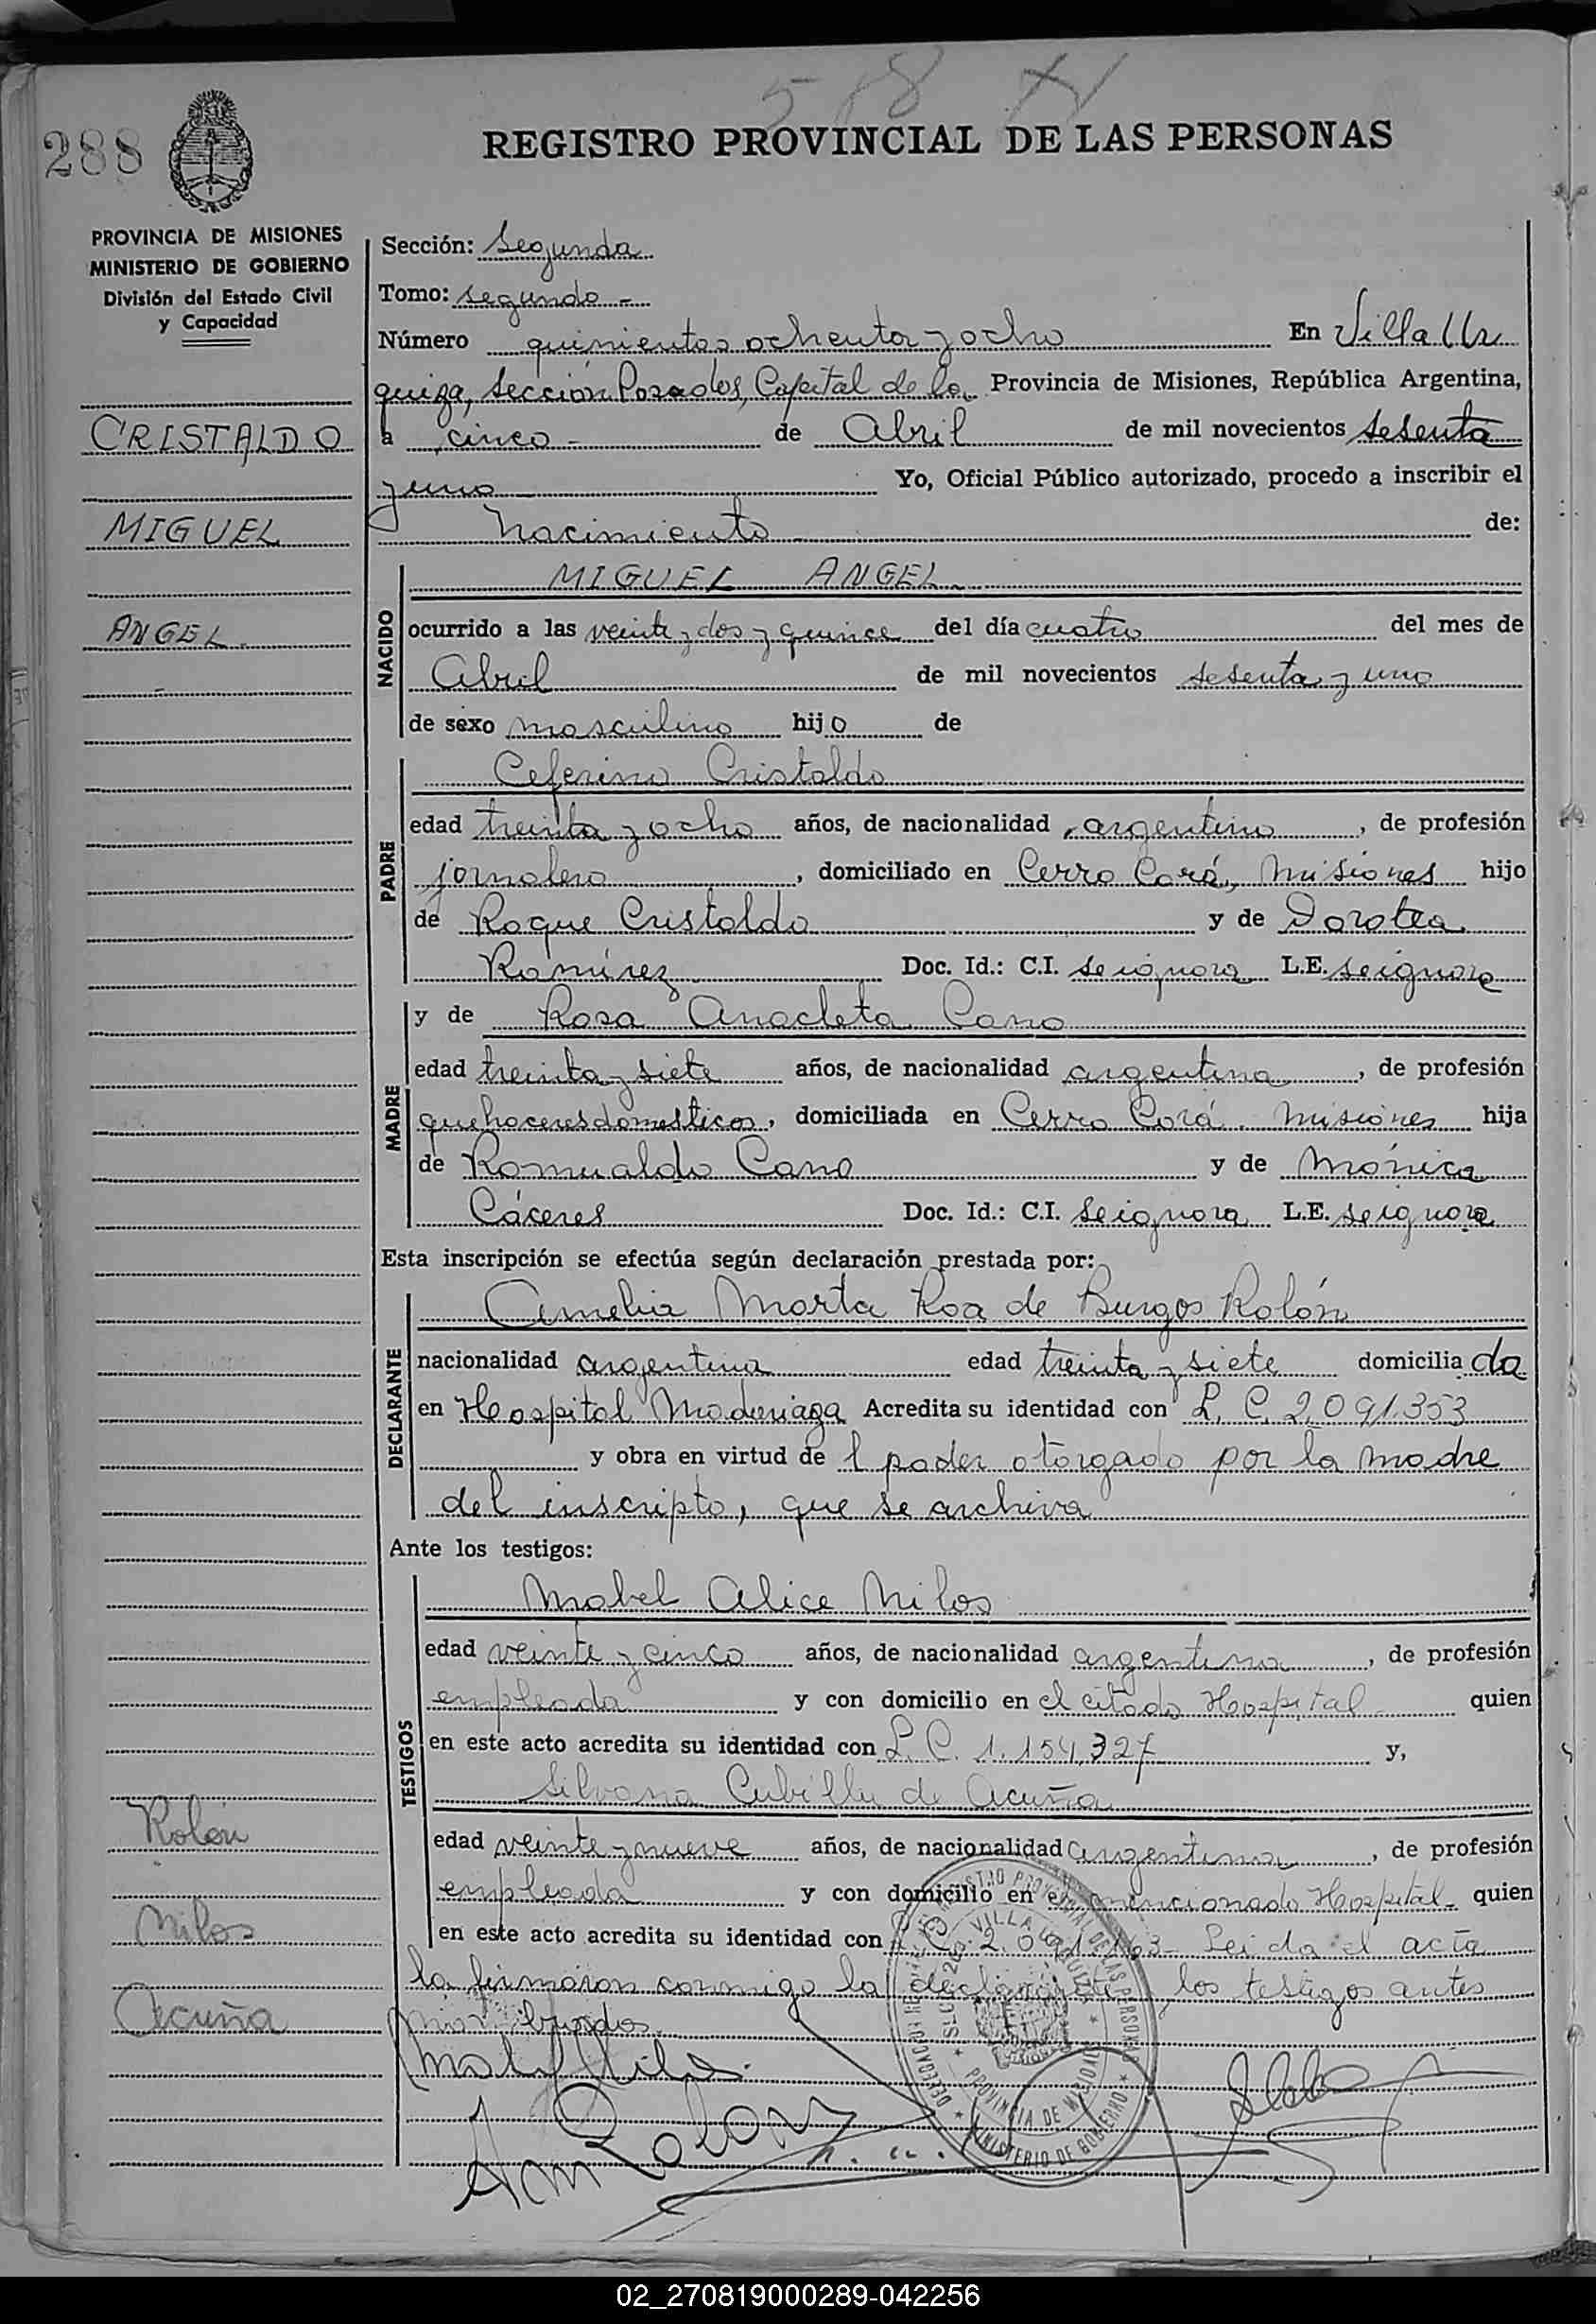 588
288
REGISTRO PROVINCIAL DE LAS PERSONAS
PROVINCIA DE MISIONES
MINISTERIO DE GOBIERNO
División del Estado Civil
y Capacidad
CRISTALDO
MIGUEL
ANGEL
Sección: Segunda
Tomo: segundo -
Número quinientos ochenta y ocho En Villa Ur
quiza, Sección Posadas, Capital de la Provincia de Misiones, República Argentina,
a cinco - de Abril de mil novecientos sesenta
y uno Yo, Oficial Público autorizado, procedo a inscribir el
Nacimiento de:
NACIDO
MIGUEL ANGEL
ocurrido a las veinte y dos y quince del día cuatro del mes de
Abril de mil novecientos sesenta y uno
de sexo masculino hijo de
PADRE
Ceferino Cristaldo
edad treinta y ocho años, de nacionalidad argentino, de profesión
jornalero, domiciliado en Cerro Corá, Misiones hijo
de Roque Cristaldo y de Dorotea
Ramírez Doc. Id.: C.I. se ignora L.E. se ignora
MADRE
y de Rosa Anacleta Cano
edad treinta y siete años, de nacionalidad argentina, de profesión
quehaceres domesticos, domiciliada en Cerro Corá. Misiones hija
de Romualdo Cano y de Mónica
Cáceres Doc. Id.: C.I. se ignora L.E. se ignora
Esta inscripción se efectúa según declaración prestada por:
DECLARANTE
Amelia Marta Roa de Burgos Rolón
nacionalidad argentina edad treinta y siete domiciliada
en Hospital Madariaga Acredita su identidad con L. C. 2.091.353
y obra en virtud del poder otorgado por la madre
del inscripto, que se archiva
Ante los testigos:
TESTIGOS
Mabel Alice Milos
edad veinte y cinco años, de nacionalidad argentina, de profesión
empleada y con domicilio en el citado Hospital quien
en este acto acredita su identidad con L. C. 1.154.327 y,
Silvana Cubilla de Acuña
edad veinte y nueve años, de nacionalidad argentina, de profesión
empleada y con domicilio en el mencionado Hospital - quien
en este acto acredita su identidad con Leida el acta
la firmaron conmigo la declarante los testigos antes
Rolón
Milos
Acuña
Mabel Milos.
AmRolon
MINISTERIO DE GOBIERNO
PROVINCIA DE MISIONES
02_270819000289-042256